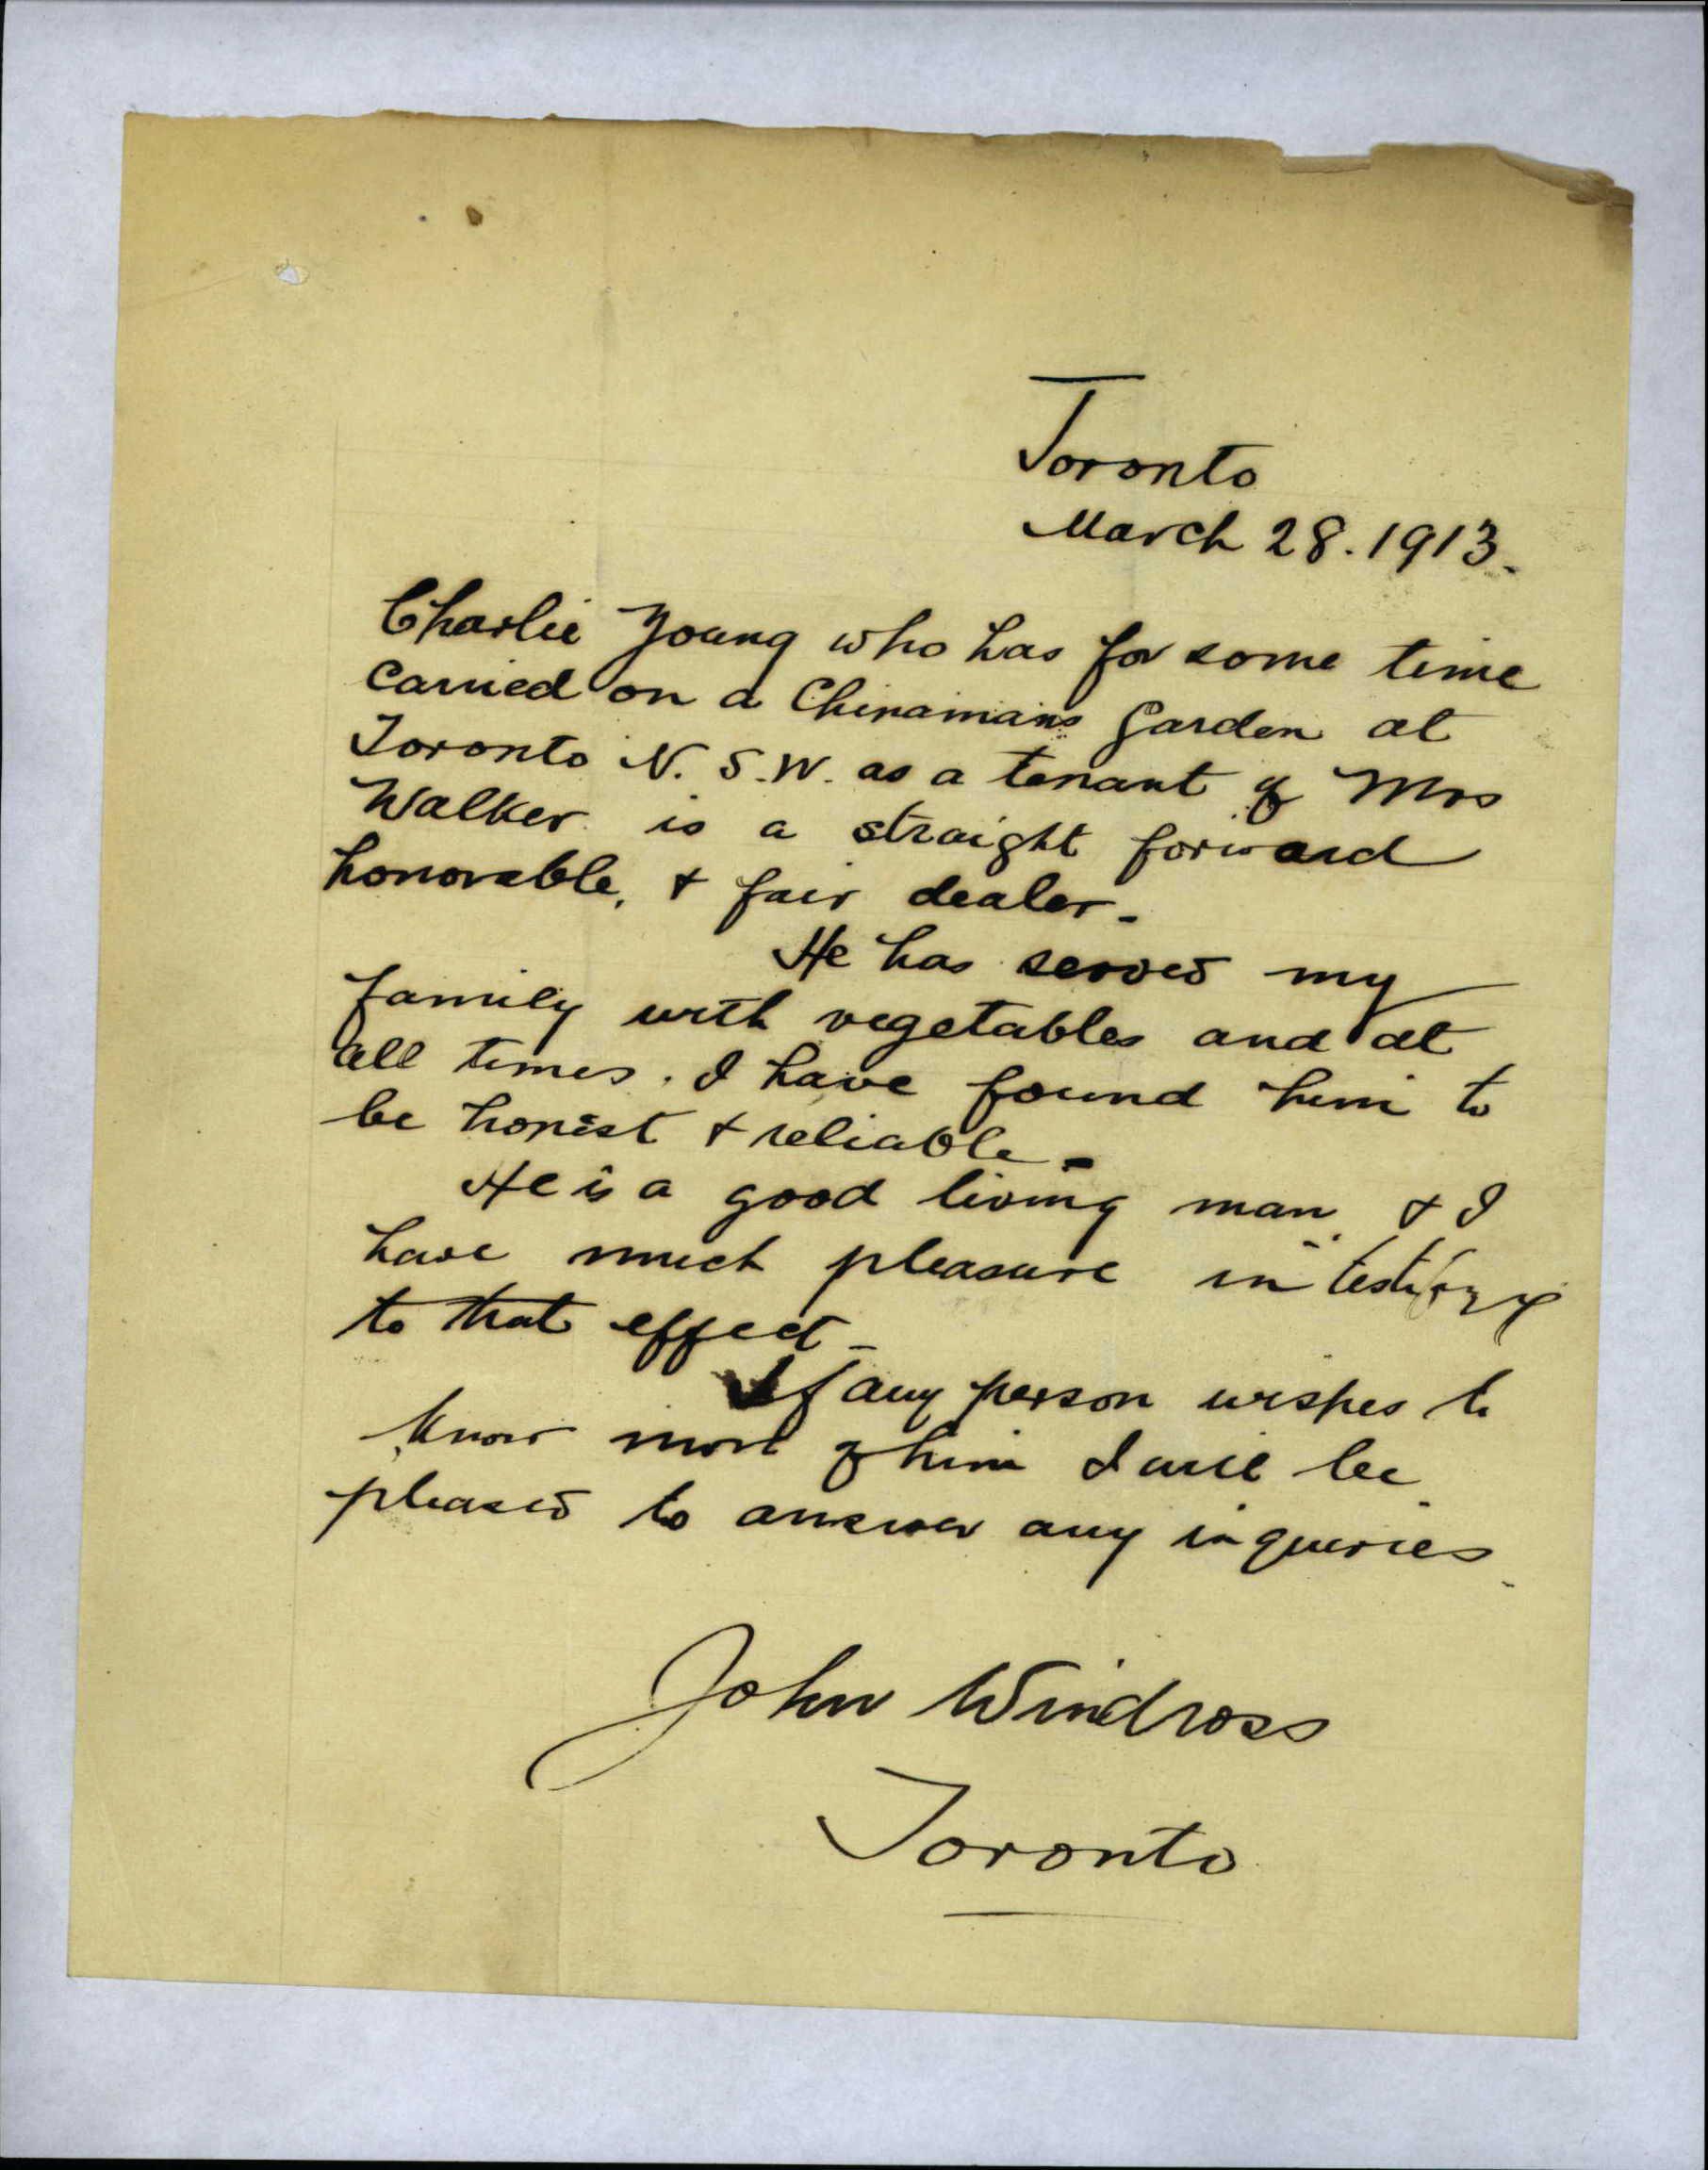 Toronto
March 28. 1913.
Charlie Young who has for some time
carried on a Chinamans Garden at
Toronto N. S. W. as a tenant of Mrs
Walker is a straight forward
honorable, & fair dealer.
He has served my
family with vegetables and at
all times. I have found him to
be honest & reliable.
He is a good living man. & I
have much pleasure in testifying
to that effect
If any person wishes to
know more of him I will be
pleased to answer any inqueries.
John Windross
Toronto